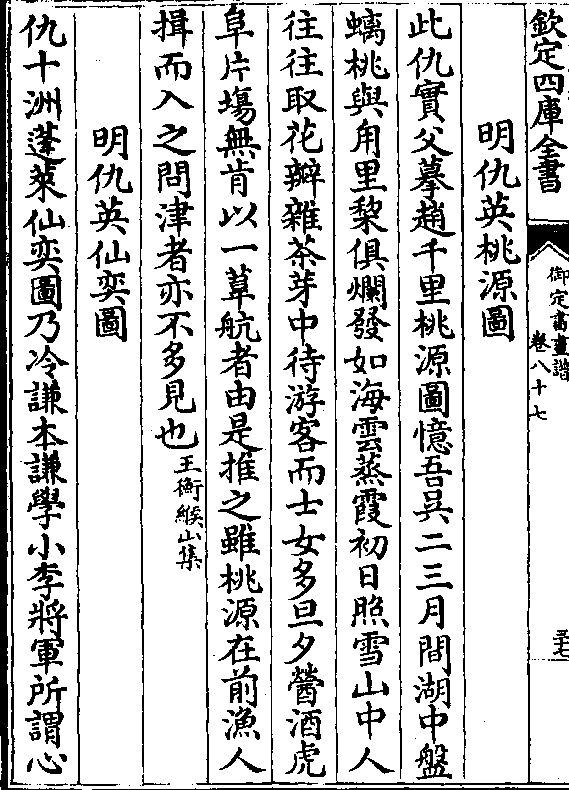 欽定四庫全書
御定書畫譜
卷八十七
五七
明仇英桃源圖
此仇實父摹趙千里桃源圖憶吾吳二三月間湖中盤
螭桃與甪里黎俱爛發如海雲蒸霞初日照雪山中人
往往取花瓣雜茶芽中待游客而士女多旦夕醟酒虎
阜片塲無肯以一草航者由是推之雖桃源在前漁人
揖而入之問津者亦不多見也王衡緱山集
明仇英仙奕圖
仇十洲蓬萊仙奕圖乃冷謙本謙學小李將軍所謂心